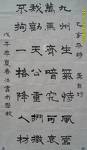 己亥雜詩 龔自珍
九州生氣恃風雷
萬馬齊瘖究可哀
我勸天公重抖擻
不拘一格降人材
戊子年夏